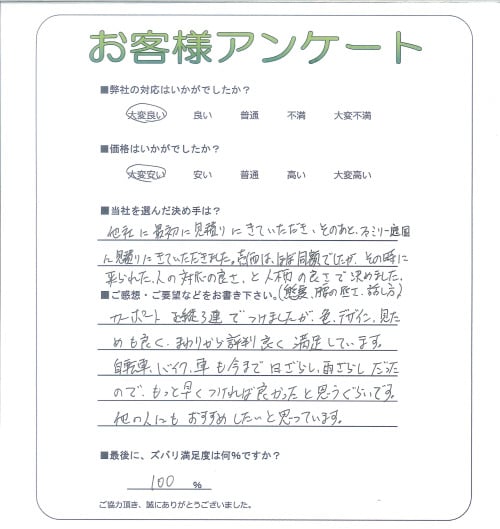 お客様アンケート
■弊社の対応はいかがでしたか?
大変良い 良い 普通 不満 大変不満
■価格はいかがでしたか?
大変安い 安い 普通 高い 大変高い
■当社を選んだ決め手は?
他社に最初に見積りにきていただき、そのあと、ファミリー庭園
に見積りにきていただきました。価格は、ほぼ同額でしたが、その時に
来られた、人の対応の良さ、と人柄の良さで決めました。
■ご感想・ご要望などをお書き下さい。(態度、腰の低さ、話し方)
カーポートを縦3連でつけましたが、色、デザイン、見た
めも良く、まわりから評判良く満足しています。
自転車、バイク、車も今まで日ざらし、雨ざらしだった
ので、もっと早くつければ良かったと思うぐらいです。
他の人にもおすすめしたいと思っています。
■最後に、ズバリ満足度は何%ですか?
100 %
ご協力頂き、誠にありがとうございました。